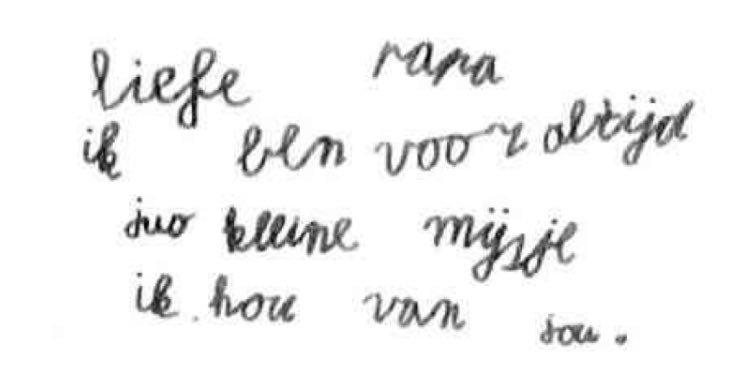 liefe papa
ik ben voor altijd
juo kleine mijsje
ik hou van jou.